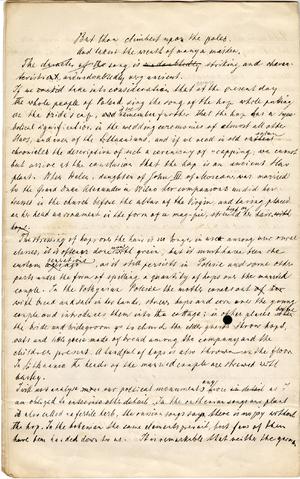 But thou climbest upon the poles.
And leave the wreath of many a maiden.
The character of the song is undoubtedly striking and charac-
teristical, and undoubtedly very ancient.
If we consider take into consideration that at the present day
the whole people of Poland sing the song of the hop while putting
on the bride's cap, and remember further that the hop has a sym-
bolical signification in the wedding ceremonies of almost all other
Slavs, and even of the Lithuanians, and if we read in old
chronicles the description of such a ceremony of capping, we cannot
but arrive at the conclusion that the hop is an ancient Slav
plant. When Helen, daughter of John III of Moscow, was married
to the Grand Duke Alexander in Wilno her companions undid her
tresses in the church before the altar of the Virgin, and having placed
on her head an ornament in the form of a mag-pie, strewed her hair with
hops.
The strewing of hops over the hair is no longer in use among our
classes, is oftener done with grain, but it must have been the
custom, as it still persists in Polesie and some other
parts under the form of spilling a quantity of hops over the married
couple. In the Volhynian Polesie the mother comes out of
with bread and salt in her hands, strews hops and corn over the young
couple and introduces them into the cottage; in other places before
the bride and bridegroom go to church the elder throws hops,
oats and little pieces made of bread among the company and the
children present. A handful of hops is also thrown on the floor.
In Lithuania the heads of the married couple are strewed with
barley.
I will not analyse more our poetical monuments in detail as I
am obliged to enter into details. In the ruthenian songs our plant
is also called a fertile herb, the russian songs say there is no joy without
the hop. In the bohemian the same elements persist, but few of them
have been handed down to us. It is remarkable that neither the